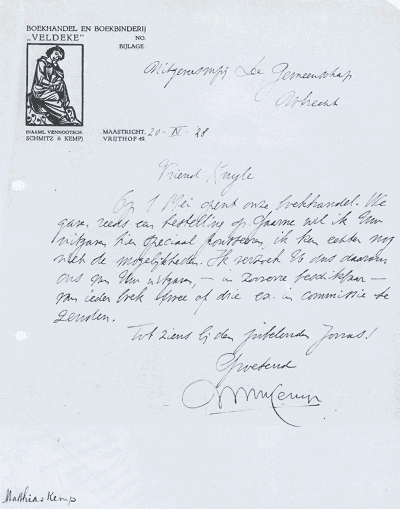 BOEKHANDEL EN BOEKBINDERIJ
„VELDEKE”
NO.
BIJLAGE:
Uitgeversmij De Gemeenschap
Utrecht
(VOORM. VENNOOTSCH.
SCHMITZ & KEMP)
MAASTRICHT, 20-IV-28
VRIJTHOF 49.
Vriend Kuyle
Op 1 Mei opent onze boekhandel. We
gaven reeds een bestelling op. Gaarne wil ik Uw
uitgaven hier speciaal pousseeren, ik ken echter nog
niet de mogelijkheden. Ik verzoek U ons daarom
ons van Uw uitgaven, – in zooverre beschikbaar –
van ieder boek twee of drie ex. in commissie te
zenden.
Tot ziens bij den jubelenden Joras!
Groetend
Kemp
Matthias Kemp